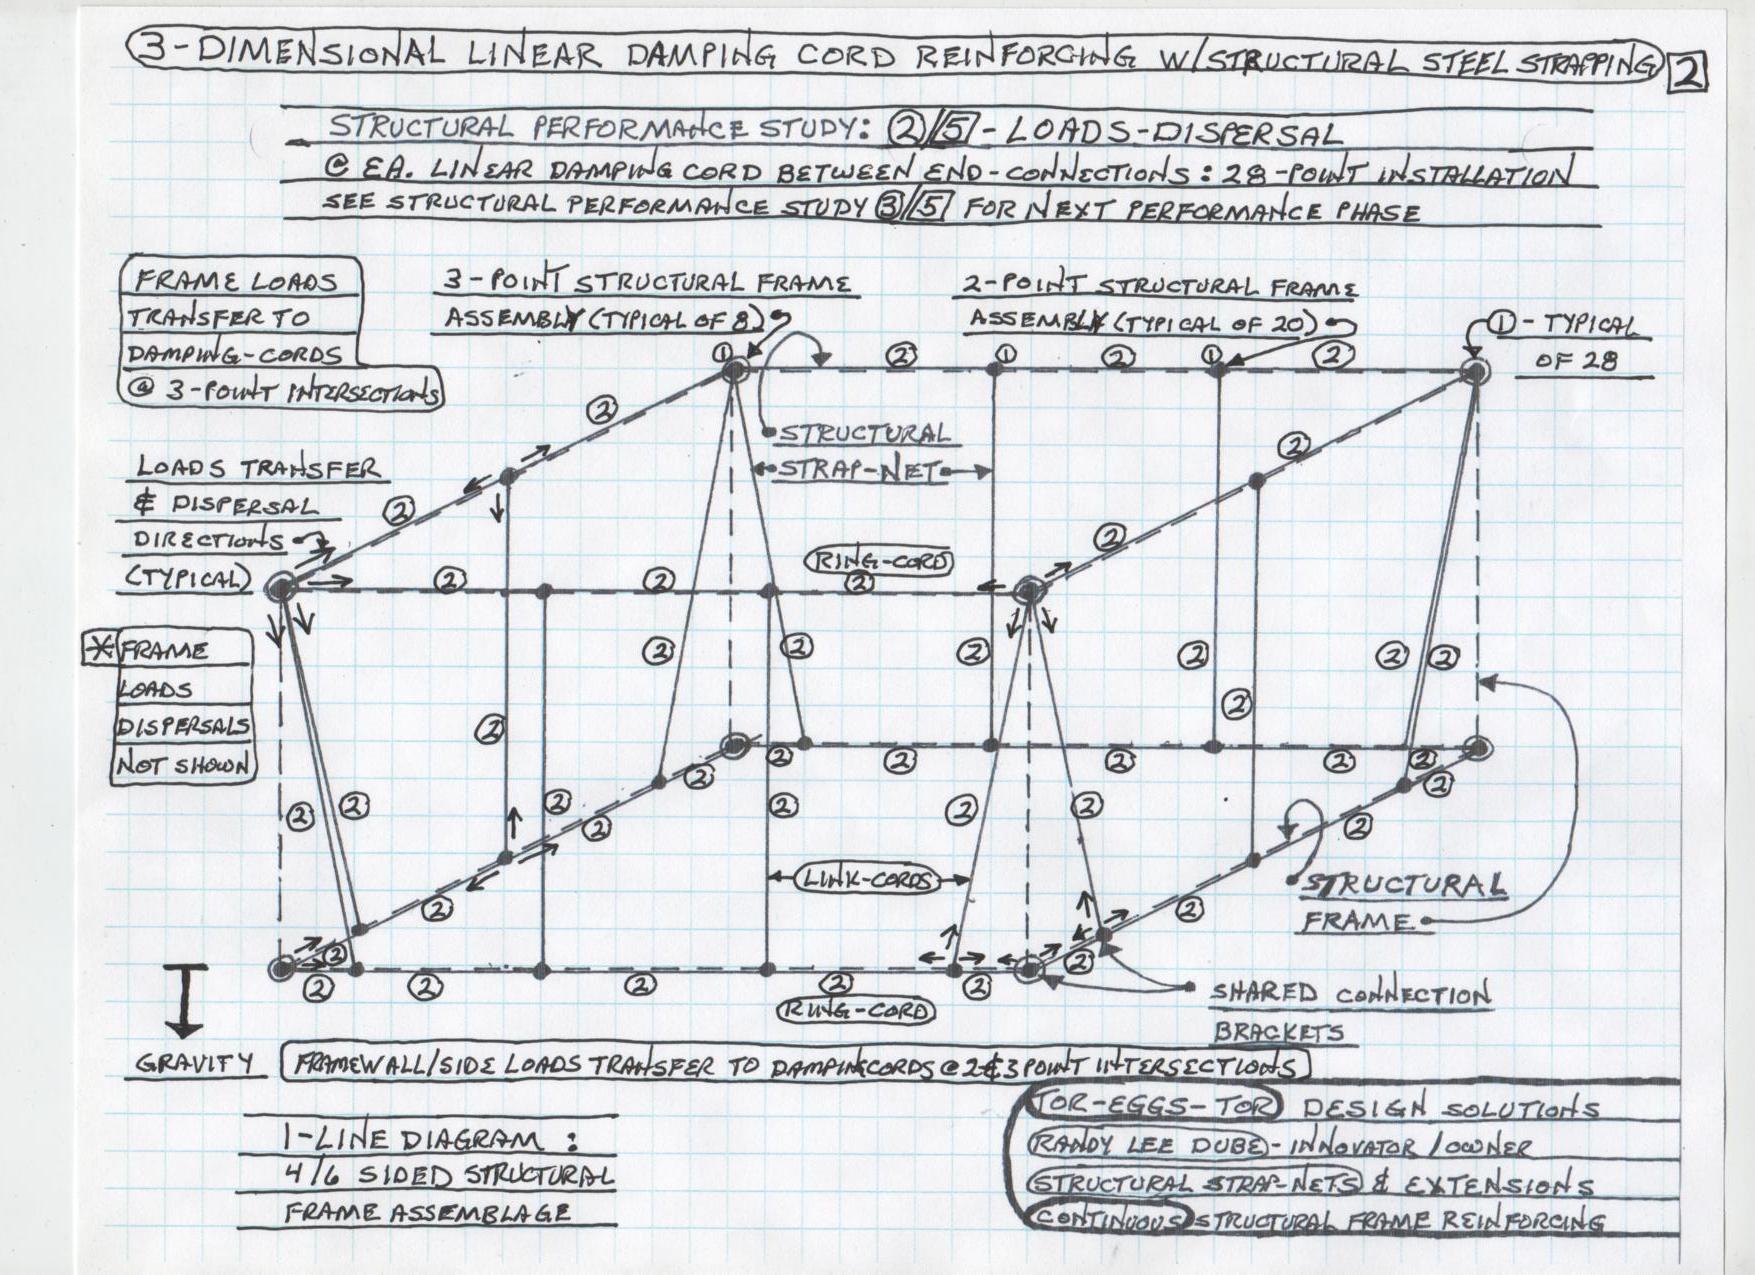 3-DIMENSIONAL LINEAR DAMPING CORD REINFORCING W/STRUCTURAL STEEL STRAPPING 2
STRUCTURAL PERFORMANCE STUDY: 2/5 - LOADS-DISPERSAL
@ EA. LINEAR DAMPING CORD BETWEEN END-CONNECTIONS: 28-POINT INSTALLATION
SEE STRUCTURAL PERFORMANCE STUDY 3/5 FOR NEXT PERFORMANCE PHASE
FRAME LOADS
TRANSFER TO
DAMPING-CORDS
@ 3-POINT INTERSECTIONS
3-POINT STRUCTURAL FRAME
ASSEMBLY (TYPICAL OF 8)
2-POINT STRUCTURAL FRAME
ASSEMBLY (TYPICAL OF 20)
1 - TYPICAL
OF 28
1 2 1 2 1 2
2
STRUCTURAL
STRAP-NET
2
LOADS TRANSFER
& DISPERSAL
DIRECTIONS
(TYPICAL)
2
2
RING-CORD
2 2 2
* FRAME
LOADS
DISPERSALS
NOT SHOWN
2 2 2 2 2 2
2 2
2 2 2 2 2 2
2
2 2 2 2 2 2 2 2
LINK-CORDS
2 2
STRUCTURAL
FRAME
2 2
2 2 2 2 2
RING-CORD
SHARED CONNECTION
BRACKETS
GRAVITY
FRAMEWALL/SIDE LOADS TRANSFER TO DAMPINGCORDS @ 2&3 POINT INTERSECTIONS
1-LINE DIAGRAM:
4/6 SIDED STRUCTURAL
FRAME ASSEMBLAGE
TOR-EGGS-TOR DESIGN SOLUTIONS
RANDY LEE DUBE - INNOVATOR/OWNER
STRUCTURAL STRAP-NETS & EXTENSIONS
CONTINUOUS STRUCTURAL FRAME REINFORCING